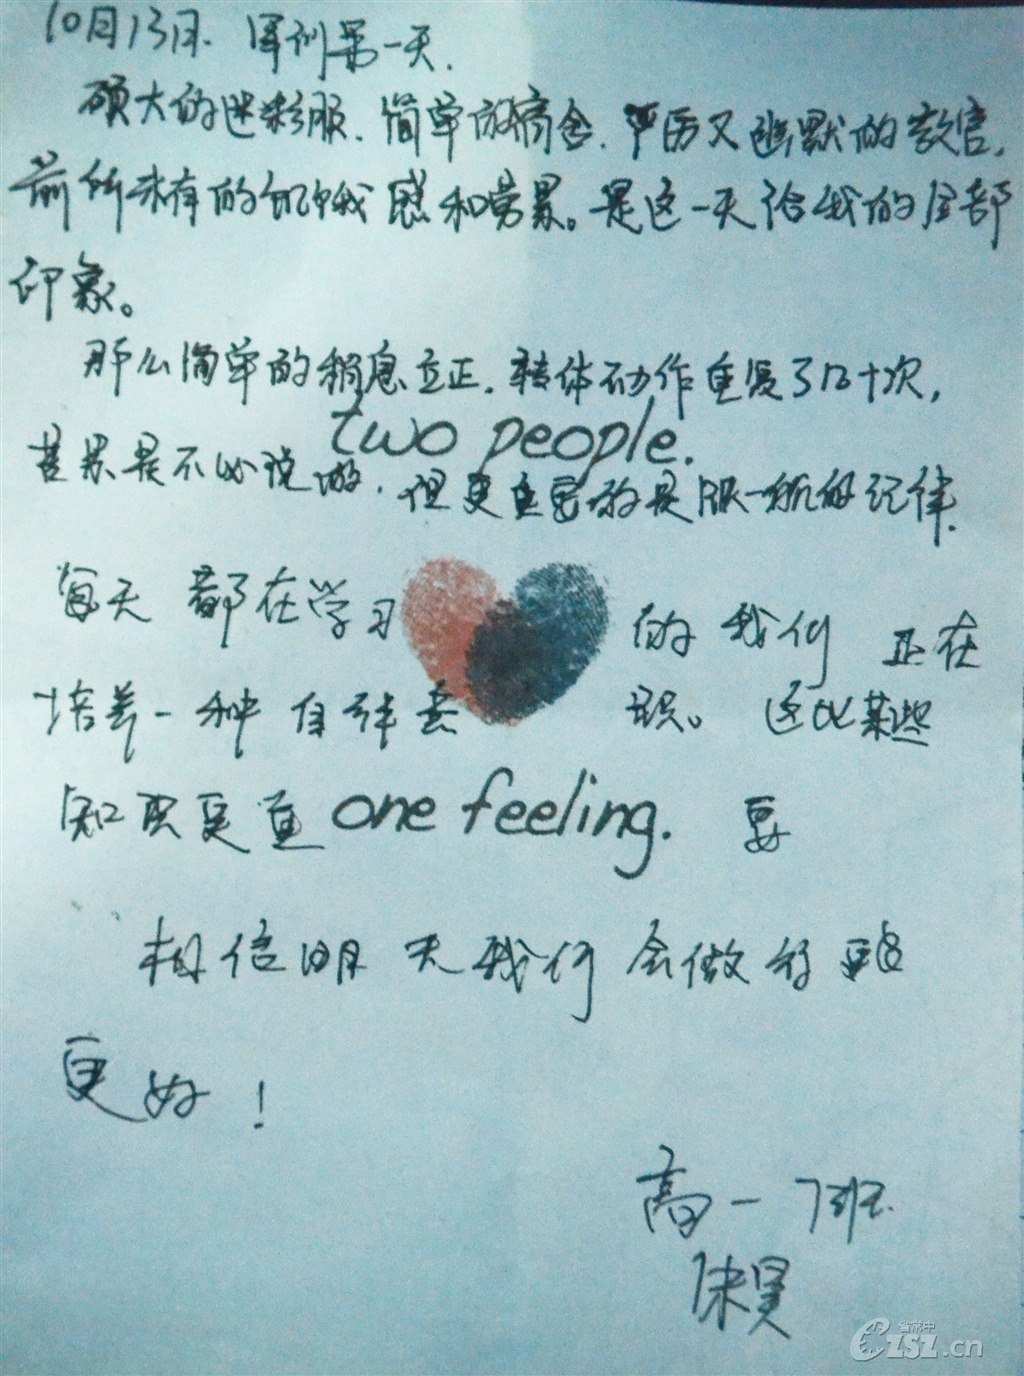 10月13日. 军训第一天.
硕大的迷彩服.简单的宿舍.严厉又幽默的教官,
前所未有的饥饿感和劳累。是这一天给我的全部
印象。
那么简单的稍息立正.转体动作重复了几十次,
two people.
甚累是不必说的.但更重要的是服一般的纪律.
每天都在学习 的我们 正在
培养一种自律意 识。这比某些
知识更重 one feeling. 要
相信明天我们会做得更
更好!
高一7班